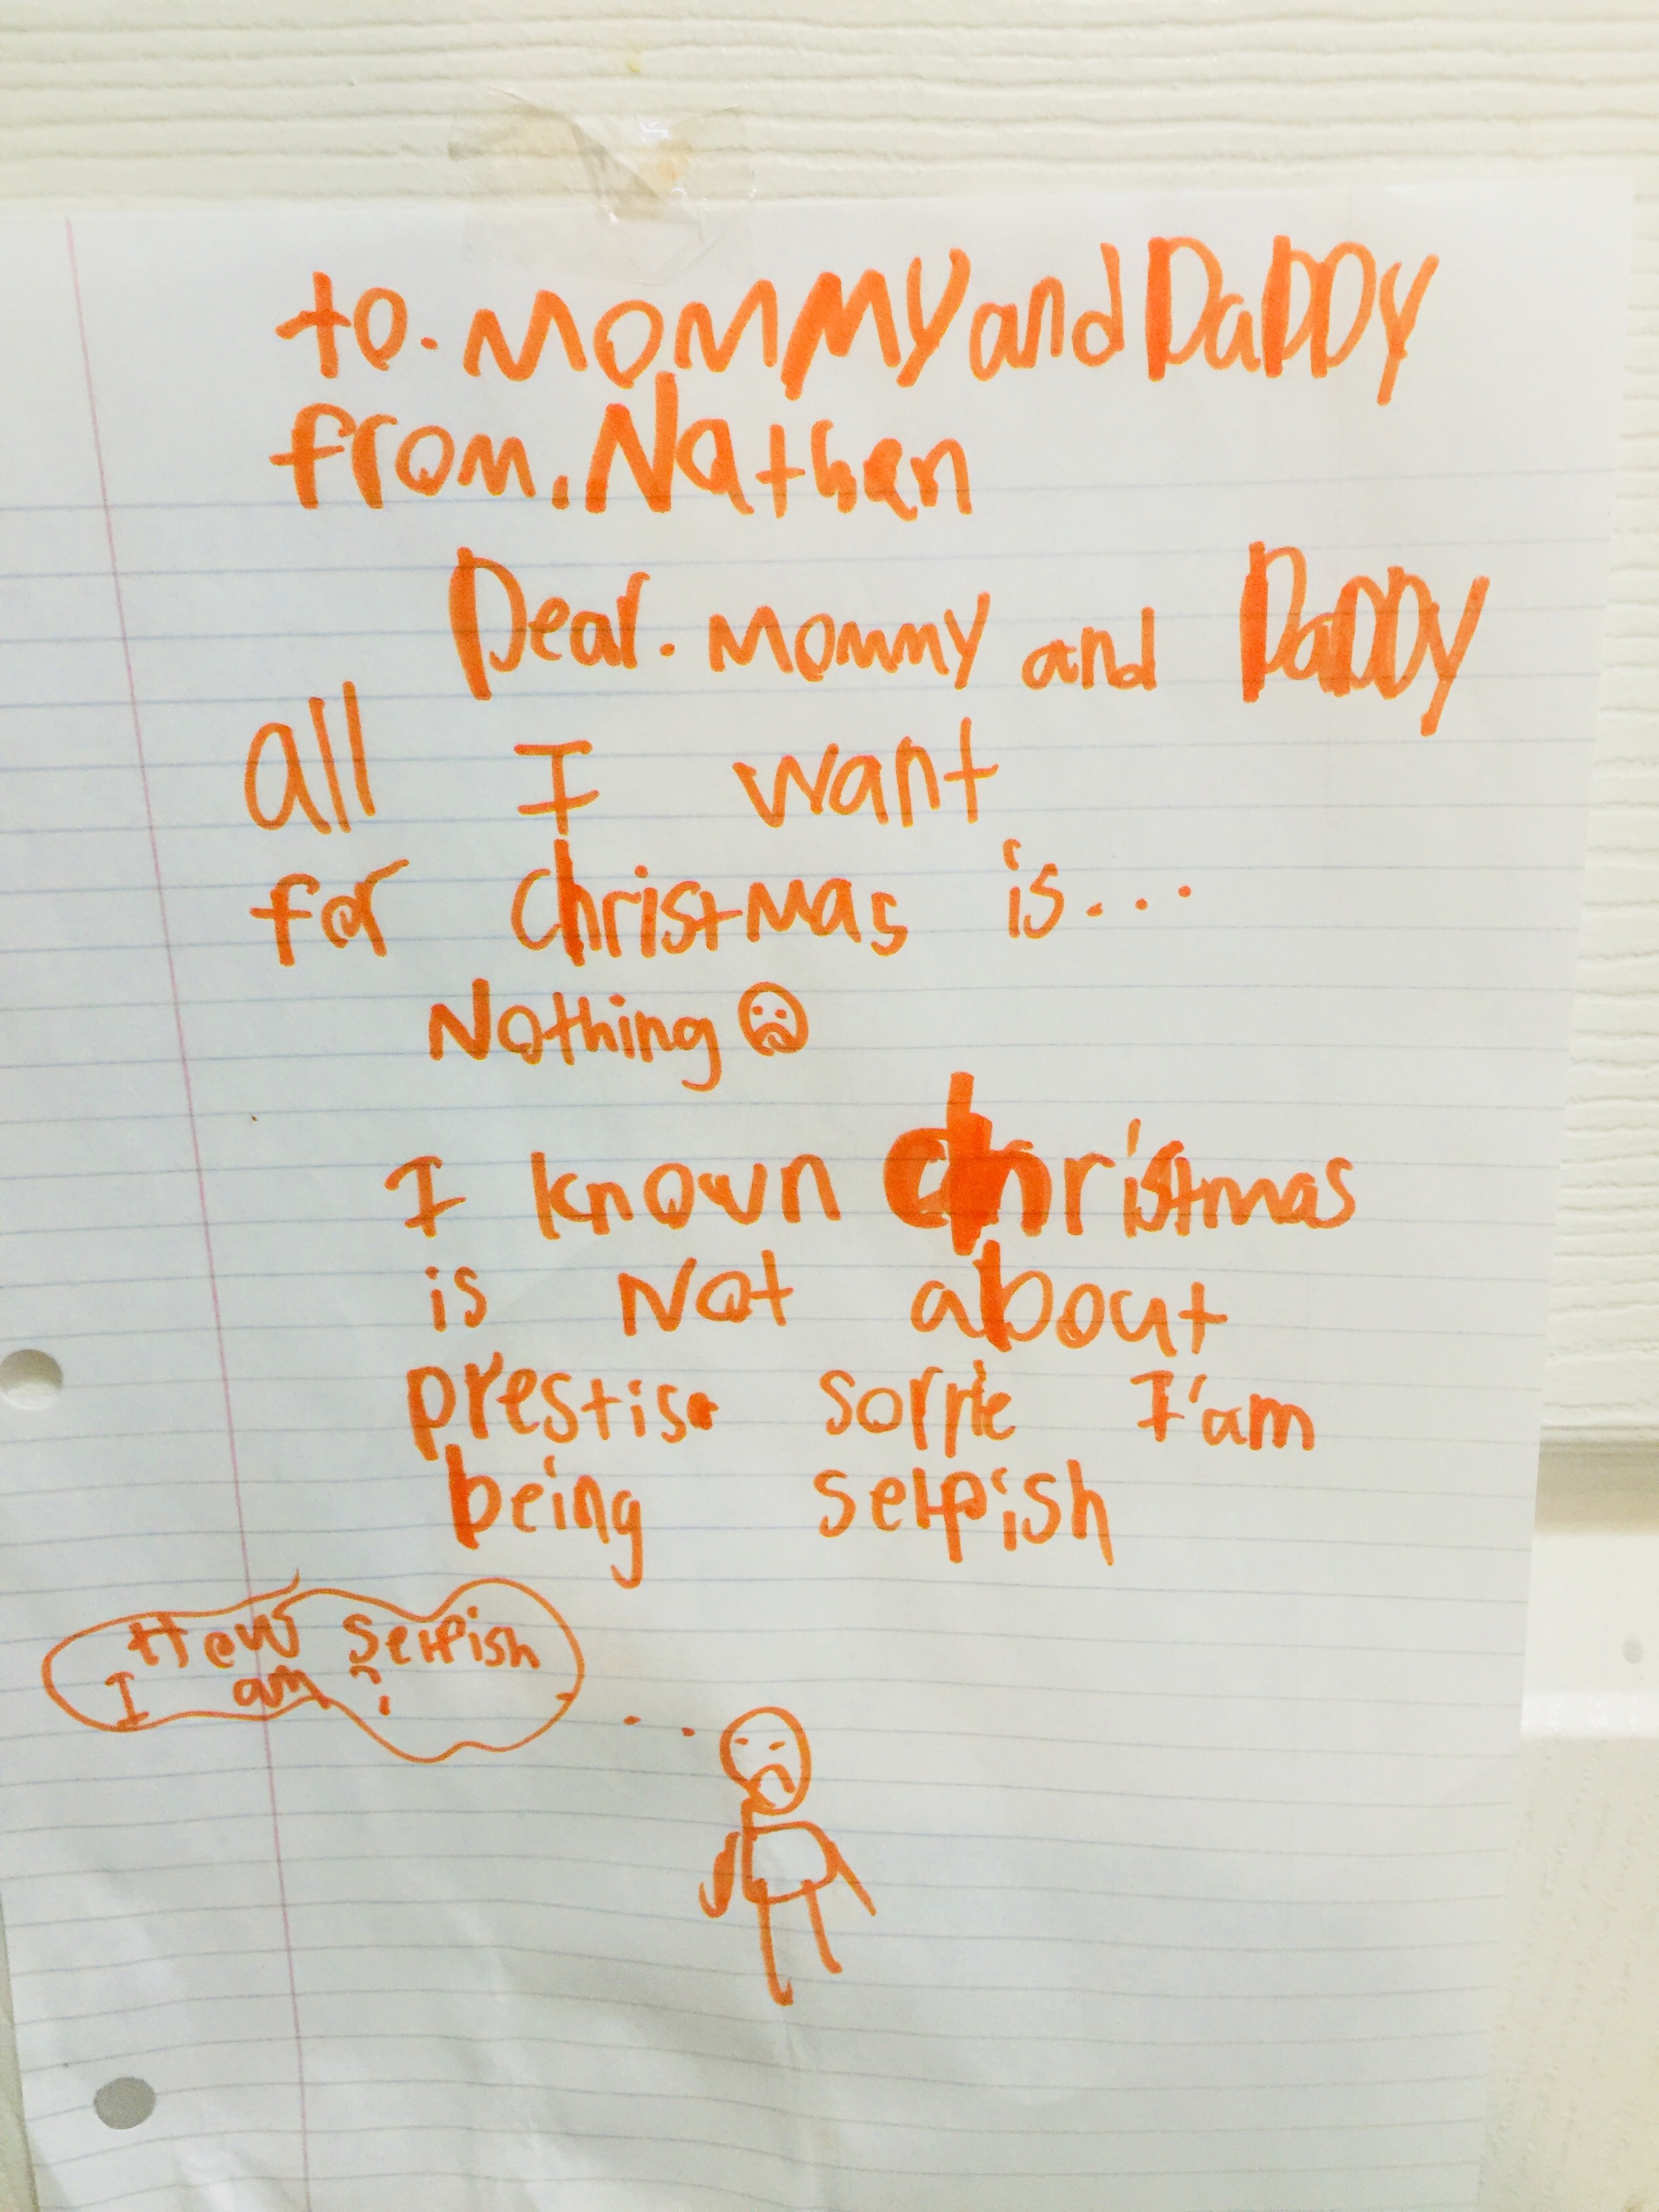 to. MOMMY and DaDDy
from. Nathan
Dear. Mommy and DaDDy
all I want
for christmas is...
Nothing
I known christmas
is Not about
prestise sorrie I'am
being selfish
How selfish
I am ?